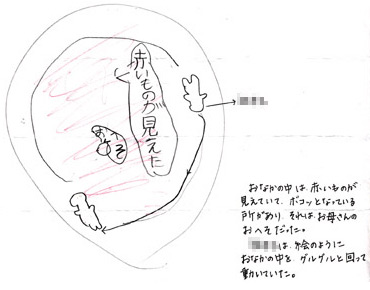 赤いものが見えた
おへそ
おなかの中は、赤いものが
見えていて、ボコッとなっている
所があり、それは、お母さんの
おへそだった。
は、絵のように
おなかの中を、グルグルと回って
動いていた。